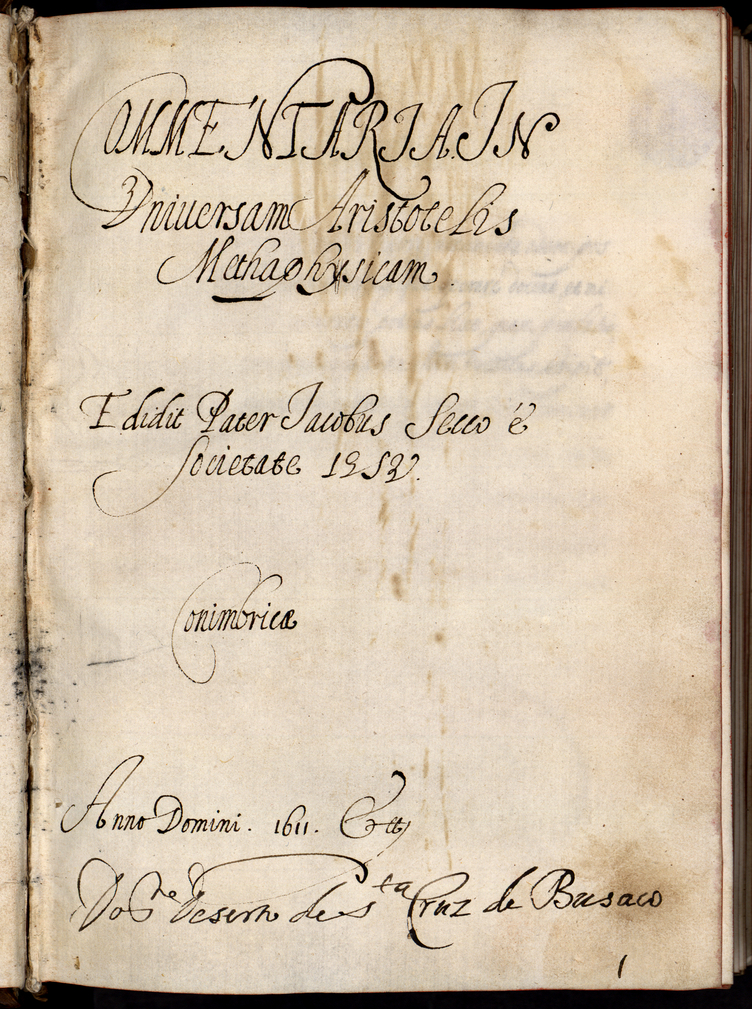 COMMENTARIA IN
Vniuersam Aristotelis
Methaphysicam.
Edidit Pater Jacobus Secco è
Societate
Conimbricæ
Anno Domini. 1611. &
Do de S.ta Cruz de Busaco
1